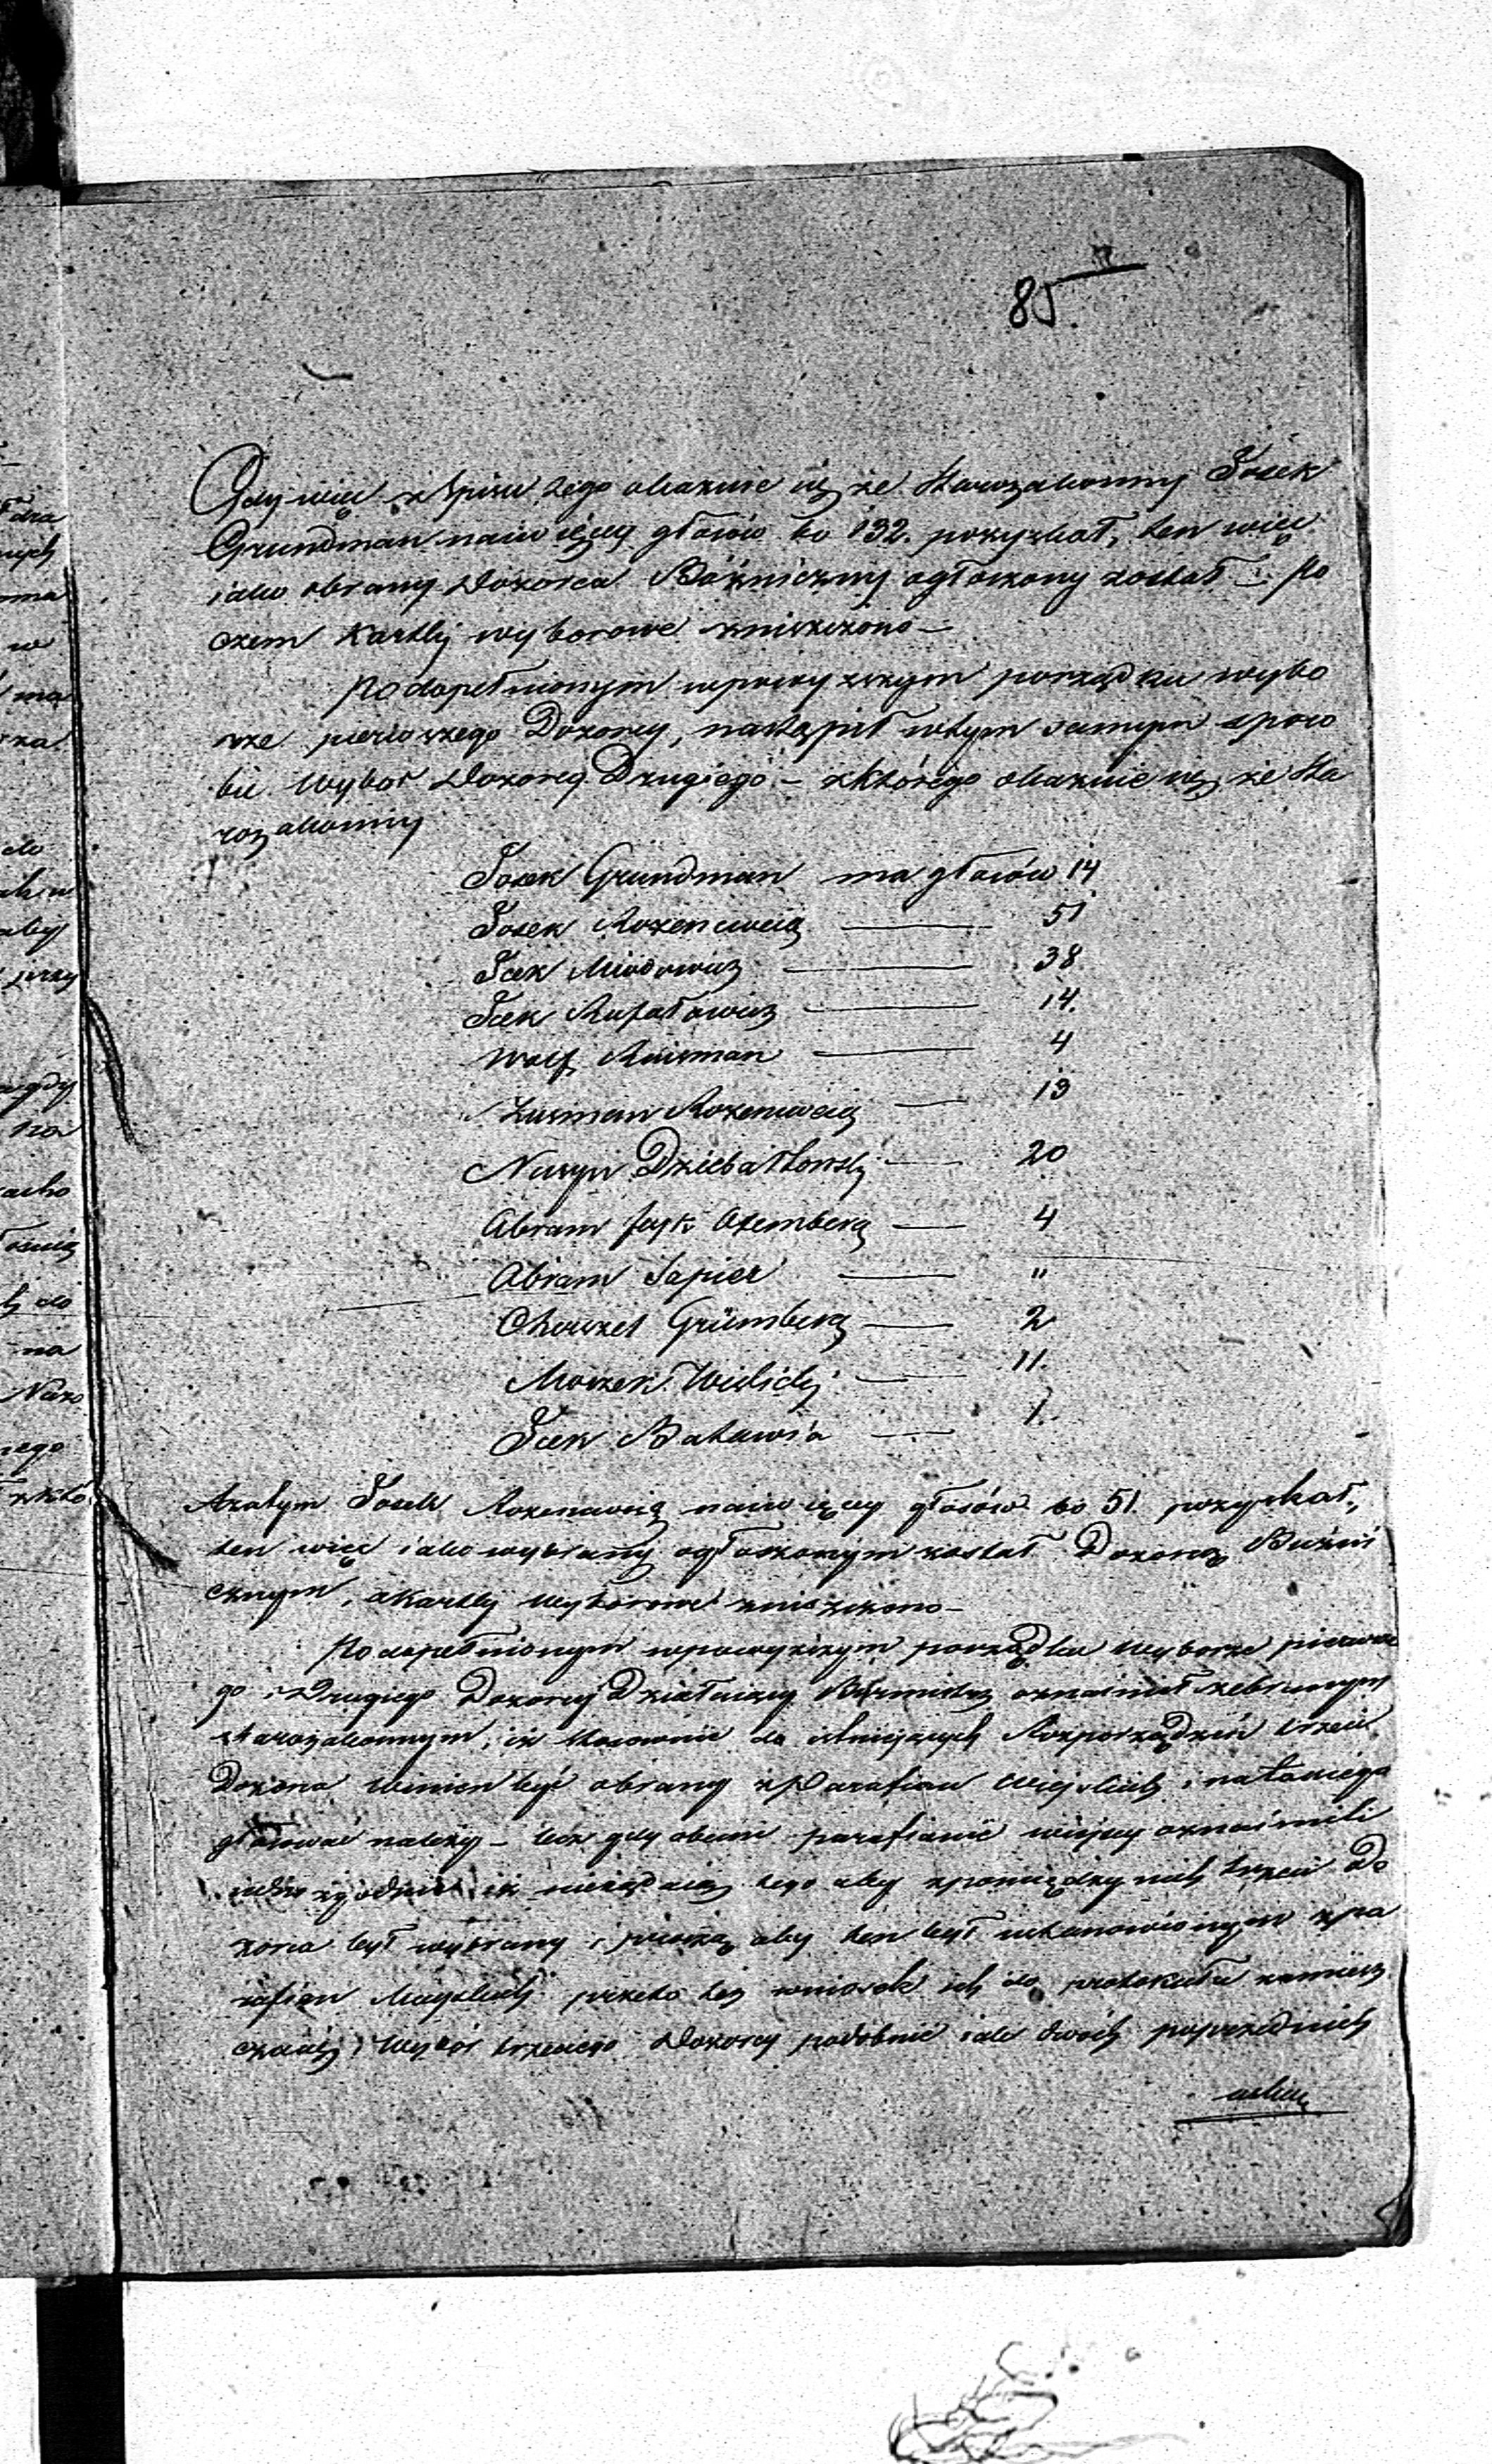 85.
Gdy więc z Spisu tego okazuie się że Starozakonny Josek
Grundman naiwięcey głosów bo 132. pozyskał, ten więc
iako obrany Dozorca Bóżniczny ogłoszony został i po
czem Kartki wyborowe zniszczono –
Po dopełnionym wpowyższym porządku wybo
rze pierwszego Dozorcy, nastąpił wtym samym sposo
bie Wybor Dozorcy Drugiego – zktórego okazuie się że Sta
rozakonny
Josek Grundman ma głosów 14
Josek Rozencweig 51
Icek Miodowicz 38
Icek Rafałowicz 14.
Wolf Reisman 4
Zusman Rozencweig 13
Nusyn Działkowski 20
Abram Izyk Ozemberg 4
Abram Sapier "
Chaskel Grünberg 2
Moszek Wiślicki 11.
Icek Batawia 1.
A zatym Josek Rozencweig naiwięcey głosów bo 51. pozyskał,
ten więc iako wybrany ogłoszonym został Dozorcą Bużni
cznym, a Kartki wyborowe zniszczono –
Po dopełnionym wpowyższym porządku wyborze pierwsze
go i Drugiego Dozorcy Działaiący Burmistrz oznaimił zebranym
starozakonnym, iż stosownie do istnieiących Rozporządzeń trzeci
Dozorca winien być obrany z Parafian wieyskich i na takiego
głosować należy – lecz gdy obecni parafianie wieyscy oznaimili
zgodnie iż nieżądaią tego aby zpomiędzy nich trzeci Do
zorca był wybrany i proszą aby ten był ustanowionym zpa
rafian Mieyskich przeto ten wniosek ich do protokułu zamiesz
czaiąc, Wybór trzeciego Dozorcy podobnie iak dwóch poprzednich